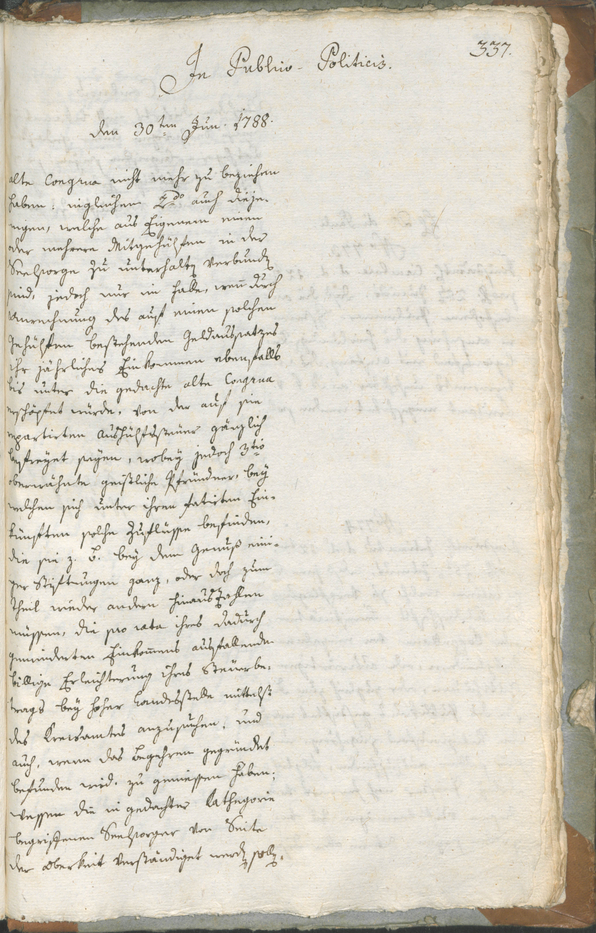 337.
In Publico-Politicis.
den 30ten Jun. 1788.
alte Congrua nicht mehr zu beziehen
haben, imgleichen 2do auch dieje-
nigen, welche aus Eigenem einen
oder mehrere Mitgehülfen in der
Seelsorge zu unterhalten verbunden
sind, jedoch nur im Falle, wenn durch
Anrechnung des auf einen solchen
Gehülfen bestehenden Geldaufsatzes
ihr jährliches Einkommen ebenfalls
bis unter die gedachte alte Congrua
erschöpfet würde, von der auf sie
repartirten Aushülfssteuer gänzlich
befreyet seyen, wobey jedoch 3tio
obernährte geistliche Pfründner, bey
welchen sich unter ihren fatirten Ein-
künften solche Zuflüsse befinden,
die sie z. B. bey dem Genuß eini-
ger Stiftungen ganz, oder doch zum
Theil wieder andern hinauszahlen
müssen, die pro rata ihres dadurch
geminderten Einkommens ausfallende
billige Erleichterung ihres Steuerbe-
trags bey hoher Landesstelle mittelst
des Kreisamtes anzusuchen, und
auch, wenn das Begehren gegründet
befunden wird, zu geniessen haben;
wessen die in gedachter Kathegorie
begriffenen Seelsorger von Seite
der Oberkeit verständiget werden sollen.